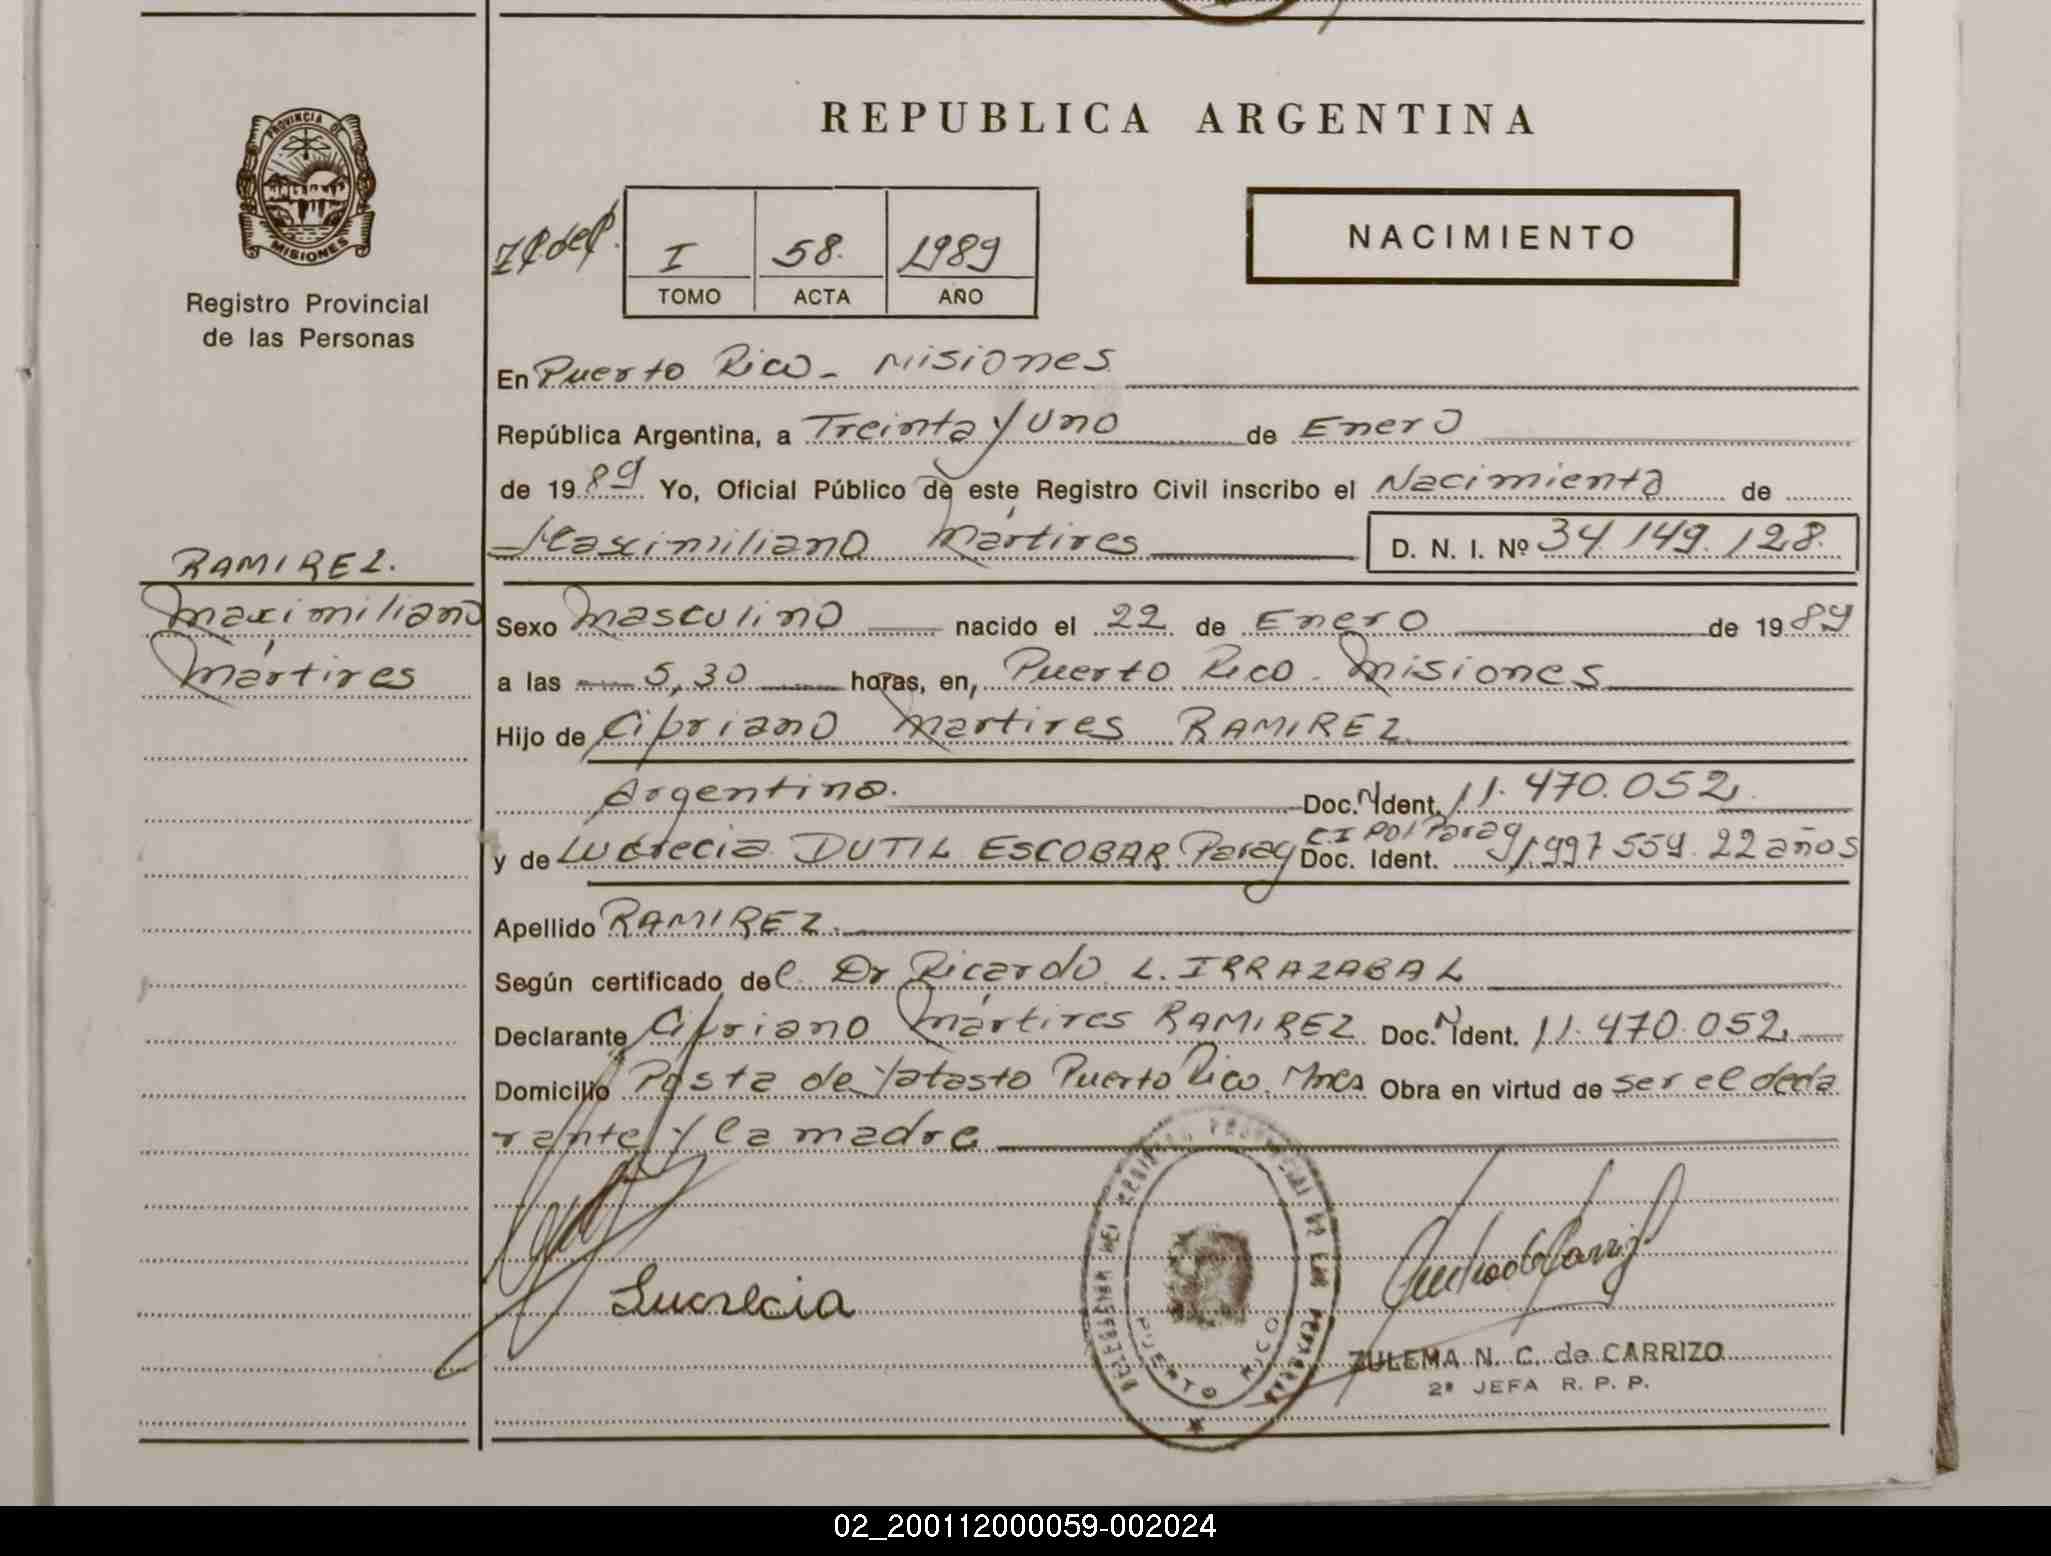 REPUBLICA ARGENTINA
PROVINCIA DE
MISIONES
Registro Provincial
de las Personas
I 58. 1989
TOMO ACTA AÑO
NACIMIENTO
En Puerto Rico - Misiones
República Argentina, a Treinta y Uno de Enero
de 1989 Yo, Oficial Público de este Registro Civil inscribo el Nacimiento de
Maximiliano Mártires D. N. I. Nº 34.149.128.
RAMIREZ.
Maximiliano
Mártires
Sexo Masculino nacido el 22 de Enero de 1989
a las 5,30 horas, en, Puerto Rico - Misiones
Hijo de Cipriano Martires RAMIREZ
Argentino. Doc. N Ident. 11.470.052
y de Lucrecia DUTIL ESCOBAR Parag C.I Pol Parag Doc. Ident. 1997559. 22 años
Apellido RAMIREZ.
Según certificado del Dr Ricardo L. IRRAZABAL
Declarante Cipriano Mártires RAMIREZ Doc. N Ident. 11.470.052
Domicilio Posta de Yatasto Puerto Rico. Mnes Obra en virtud de ser el decla
rante y la madre
Lucrecia
DELEGACION DEL REGISTRO PROVINCIAL DE LAS PERSONAS
PUERTO RICO
ZULEMA N. C. de CARRIZO
2ª JEFA R. P. P.
02_200112000059-002024